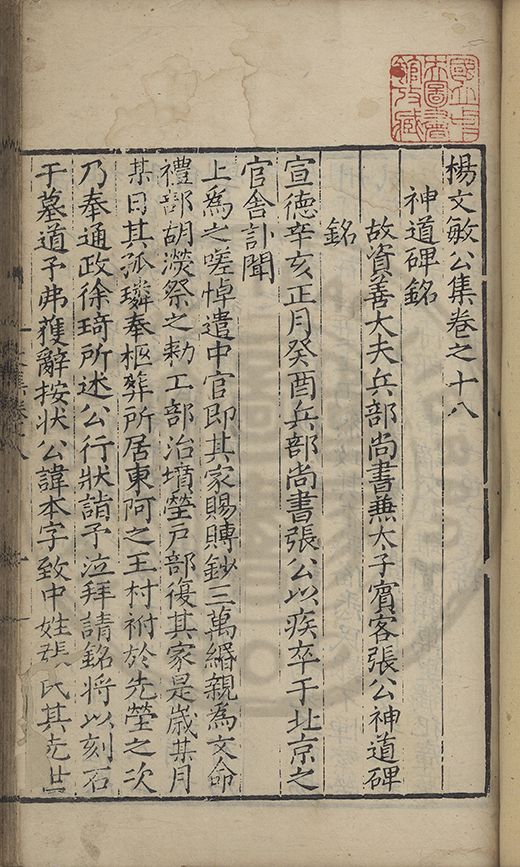 國立中
央圖書
館收藏
楊文敏公集卷之十八
神道碑銘
故資善大夫兵部尚書兼太子賓客張公神道碑
銘
宣德辛亥正月癸酉兵部尚書張公以疾卒于北京之
官舍訃聞
上為之嗟悼遣中官即其家賜賻鈔三萬緡親為文命
禮部胡濙祭之勑工部治墳塋戶部復其家是嵗某月
某日其孤璘奉柩葬所居東阿之王村祔於先塋之次
乃奉通政徐琦所述公行狀詣予泣拜請銘將以刻石
于墓道予弗獲辭按狀公諱本字致中姓張氏其先世